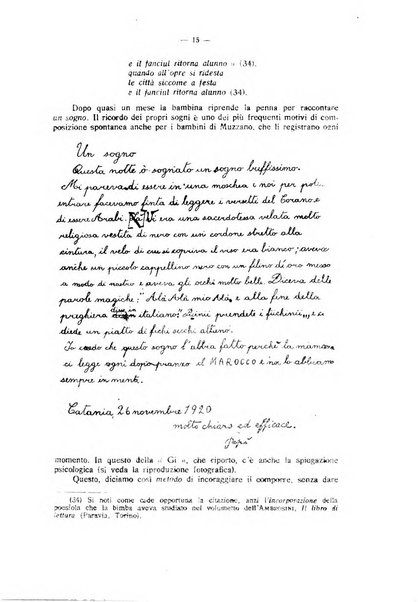 — 15 —
e il fanciul ritorna alunno » (34).
quando all'opre si ridesta
le città siccome a festa
e il fanciul ritorna alunno (34).
Dopo quasi un mese la bambina riprende la penna per raccontare
un sogno. Il ricordo dei propri sogni è uno dei più frequenti motivi di com-
posizione spontanea anche per i bambini di Muzzano, che li registrano ogni
Un sogno
Questa notte ò sognato un sogno buffissimo.
Mi pareva di essere in una moschia e noi per poti
entrare facevamo finta di leggere i versetti del Corano e
di essere Arabi. era una sacerdotessa velata molto
religiosa vestita di nero con un cordone stretto alla
sintura, il velo di cui si copriva il viso era bianco; aveva
anche un piccolo cappellino nero con un filino di oro messo
a modo di nastro e aveva gli occhi molto belli. Diceva delle
parole magiche; "Alà Alà mio Alà, e alla fine della
preghiera disse in italiano: prendete i fichini,,, e ci
diede un piatto di fichi secchi al uno.
Io credo che questo sogno l'abbia fatto perchè la mamma
ci legge ogni dopopranzo il MAROCCO e noi lo abbiamo
sempre in mente.
Catania, 26 novembre 1920
molto chiaro ed efficace.
Papà
momento. In questo della « Gi », che riporto, c'è anche la spiegazione
psicologica (si veda la riproduzione fotografica).
Questo, diciamo così metodo di incoraggiare il comporre, senza dare
(34) Si noti come cade opportuna la citazione, anzi l'incorporazione della
poesiola che la bimba aveva studiato nel volumetto dell'AMBROSINI, Il libro di
lettura (Paravia, Torino).